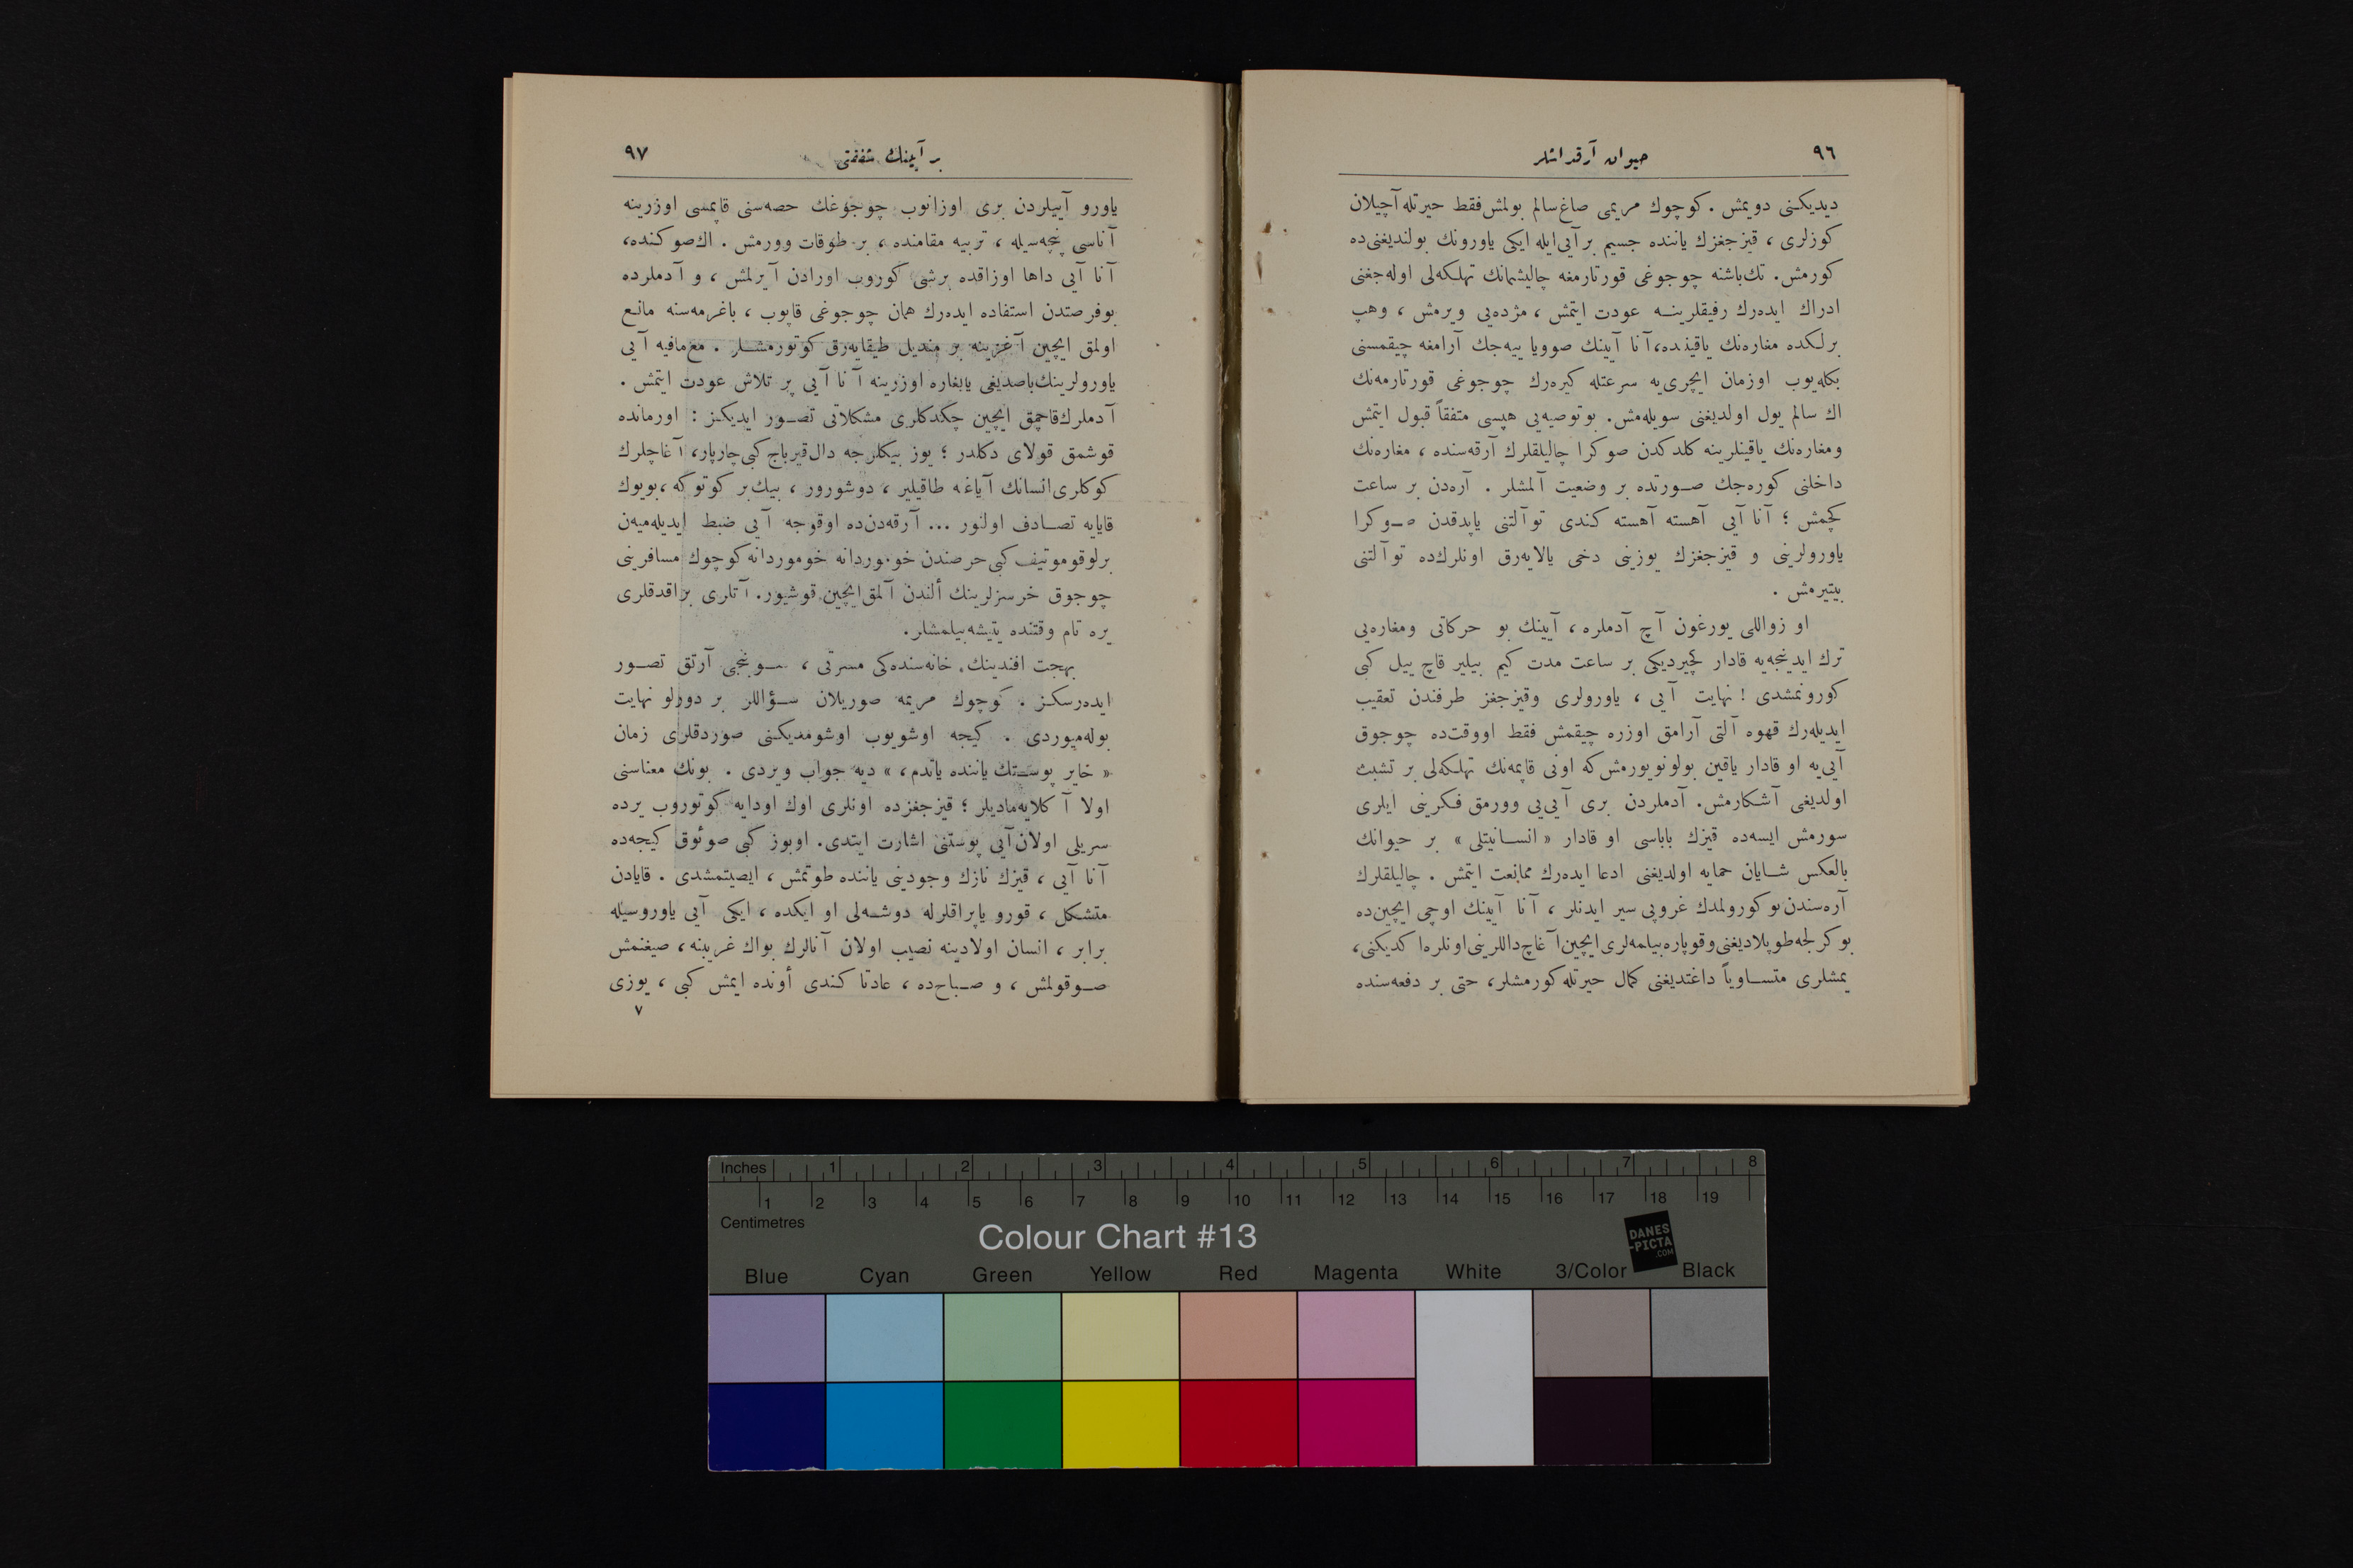 ٩٦
حيوان آرقداشلر
ديديكنى دويمش . كوچوك مريمى صاغ سالم بولمش فقط حيرتله آچيلان
كوزلرى ، قيزجغزك ياننده جسيم بر آيى ايله ايكى ياورونك بولنديغنى ده
كورمش . تك باشنه چوجوغى قورتارمغه چاليشمانك تهلكه لى اوله جغنى
ادراك ايده رك رفيقلرينه عودت ايتمش ، مژده يى ويرمش ، وهپ
برلكده مغاره نك ياقيننده ، آنا آيينك صوويا ييه جك آرامغه چيقمسنى
بكله يوب اوزمان ايچرى يه سرعتله كيره رك چوجوغى قورتارمه نك
اك سالم يول اولديغنى سويله مش . بو توصيه يى هپسى متفقاً قبول ايتمش
ومغاره نك ياقينلرينه كلدكدن صوكرا چاليلقلرك آرقه سنده ، مغاره نك
داخلنى كوره جك صورتده بر وضعيت آلمشلر . آره دن بر ساعت
كچمش ؛ آنا آيى آهسته آهسته كندى توآلتنى ياپدقدن صوكرا
ياورولرينى و قيزجغزك يوزينى دخى يالايه رق اونلرك ده توآلتنى
بيتيرمش .
او زواللى يورغون آچ آدملره ، آيينك بو حركاتى ومغاره يى
ترك ايدينجه يه قادار كچيرديكى بر ساعت مدت كيم بيلير قاچ ييل كبى
كورونمشدى ! نهايت آيى ، ياورولرى وقيزجغز طرفندن تعقيب
ايديله رك قهوه آلتى آرامق اوزره چيقمش فقط اووقت ده چوجوق
آيى يه او قادار ياقين بولونويورمش كه اونى قاپمه نك تهلكه لى بر تشبث
اولديغى آشكارمش . آدملردن برى آيى يى وورمق فكرينى ايلرى
سورمش ايسه ده قيزك باباسى او قادار « انسانيتلى » بر حيوانك
بالعكس شايان حمايه اولديغنى ادعا ايده رك ممانعت ايتمش . چاليلقلرك
آره سندن بو كورولمدك غروپى سير ايدنلر ، آنا آيينك اوچى ايچين ده
بوكرلجه طوپلاديغنى وقوپاره بيلمه لرى ايچين آغاچ داللرينى اونلره اكديكنى ،
يمشلرى متساوياً داغتديغنى كمال حيرتله كورمشلر ، حتى بر دفعه سنده
بر آيينك شفقتى
٩٧
ياورو آييلردن برى اوزانوب چوجوغك حصه سنى قاپمسى اوزرينه
آناسى پنچه سيله ، تربيه مقامنده ، بر طوقات وورمش . اك صوكنده ،
آنا آيى داها اوزاقده برشى كوروب اورادن آيرلمش ، و آدملرده
بوفرصتدن استفاده ايده رك همان چوجوغى قاپوب ، باغرمه سنه مانع
اولمق ايچين آغزينه بر منديل طيقايه رق كوتورمشلر . مع مافيه آيى
ياورولرينك باصديغى يايغاره اوزرينه آنا آيى پر تلاش عودت ايتمش .
آدملرك قاچمق ايچين چكدكلرى مشكلاتى تصور ايديكز : اورمانده
قوشمق قولاى دكلدر ؛ يوز بيكلرجه دال قيرباج كبى چارپار ، آغاچلرك
كوكلرى انسانك آياغه طاقيلير ، دوشورور ، بيك بر كوتوكه ، بويوك
قايايه تصادف اولنور ... آرقه دن ده اوقوجه آيى ضبط ايديله ميه ن
برلوقوموتيف كبى حرصندن خوموردانه خوموردانه كوچوك مسافرينى
چوجوق خرسزلرينك ألندن آلمق ايچين قوشيور . آتلرى براقدقلرى
يره تام وقتنده يتيشه بيلمشلر .
بهجت افندينك خانه سنده كى مسرتى ، سوينجى آرتق تصور
ايده رسكز . كوچوك مريمه صوريلان سؤاللر بر دورلو نهايت
بوله ميوردى . كيجه اوشويوب اوشومديكنى صوردقلرى زمان
« خاير پوستك ياننده ياتدم ، » ديه جواب ويردى . بونك معناسنى
اولا آكلايه ماديلر ؛ قيزجغزده اونلرى اوك اودايه كوتوروب يرده
سريلى اولان آيى پوستنى اشارت ايتدى . اوبوز كبى صوئوق كيجه ده
آنا آيى ، قيزك نازك وجودينى ياننده طوتمش ، ايصيتمشدى . قايادن
متشكل ، قورو ياپراقلرله دوشه لى او ايكده ، ايكى آيى ياوروسيله
برابر ، انسان اولادينه نصيب اولان آنالرك بواك غريبنه ، صيغنمش
صوقولمش ، و صباح ده ، عادتا كندى أونده ايمش كبى ، يوزى
٧
Inches 1 2 3 4 5 6 7 8
1 2 3 4 5 6 7 8 9 10 11 12 13 14 15 16 17 18 19
Centimetres
Colour Chart #13
DANES
-PICTA
.COM
Blue Cyan Green Yellow Red Magenta White 3/Color Black